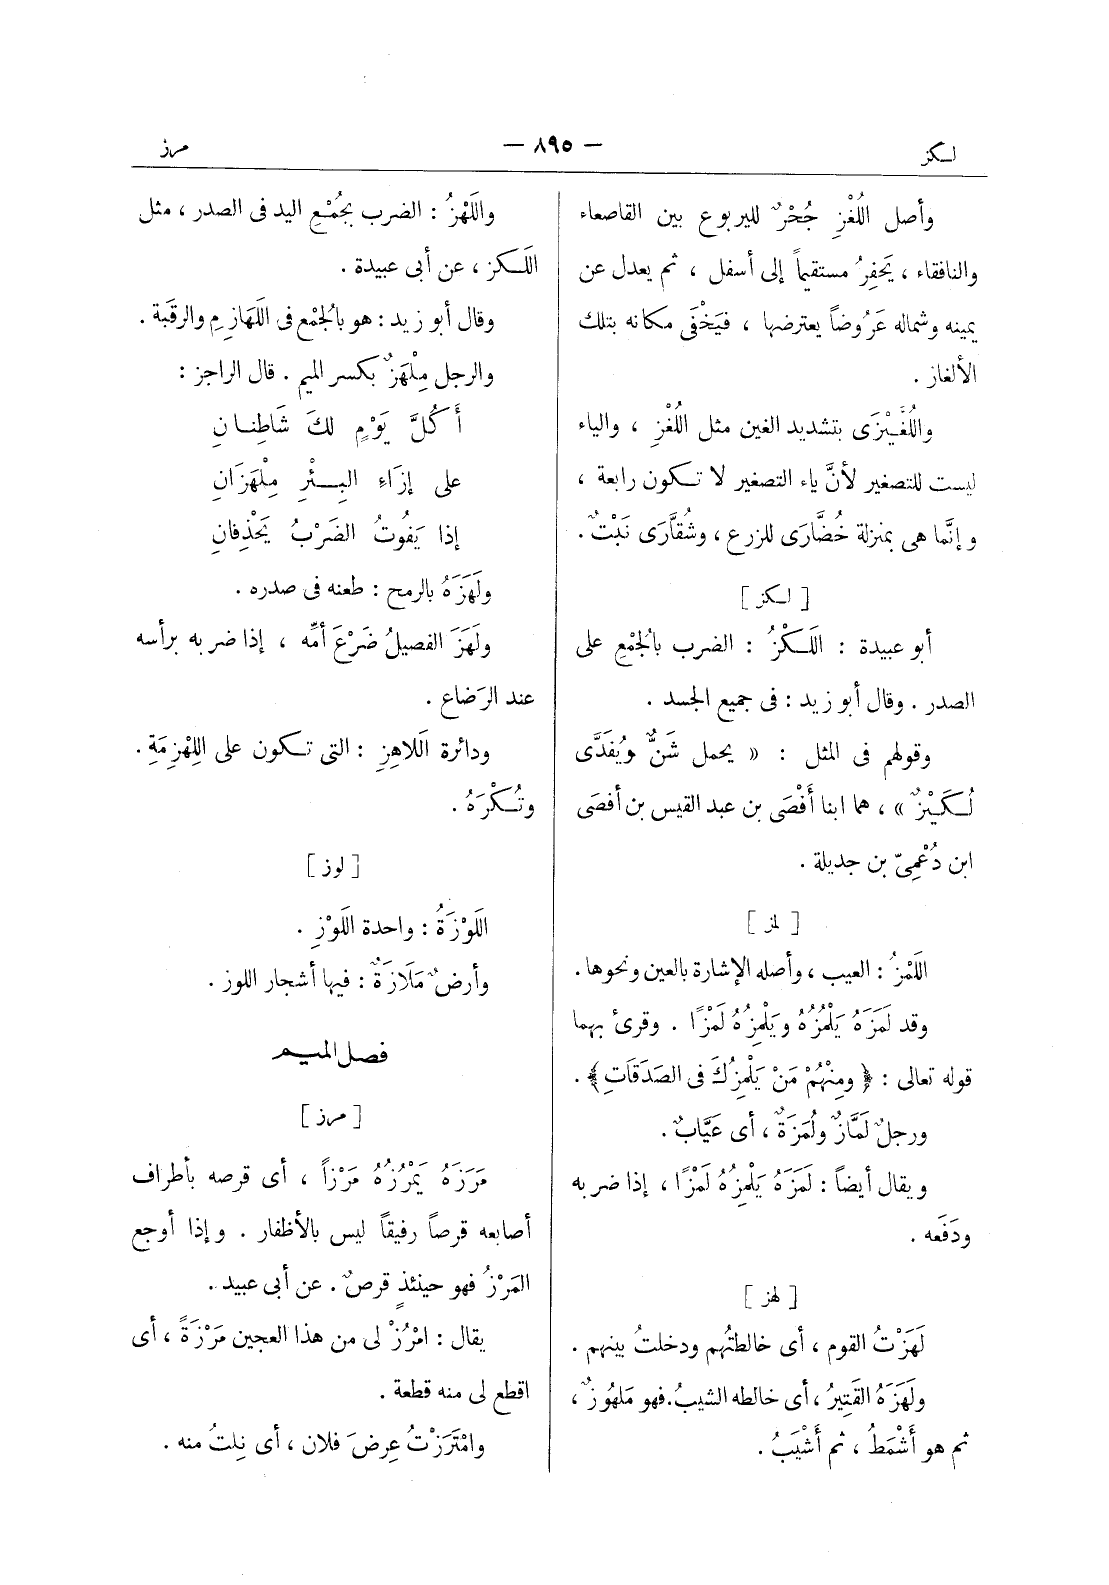 لكز
— ٨٩٥ —
مرز
وأصل اللُغْزِ جُحْرٌ لليربوع بين القاصعاء
والنافقاء ، يَحفِرُ مستقيماً إلى أسفل ، ثم يعدل عن
يمينه وشماله عَرُوضاً يعترضها ، فيَخْفَى مكانه بتلك
الألغاز .
واللُغَّيْزَى بتشديد الغين مثل اللُغْزِ ، والياء
ليست للتصغير لأنَّ ياء التصغير لا تكون رابعة ،
وإنَّما هى بمنزلة خُضَّارَى للزرع ، وشُقَّارَى نَبْتٌ .
[ لكز ]
أبو عبيدة : اللَكْزُ : الضرب بالجُمْعِ على
الصدر . وقال أبو زيد : فى جميع الجسد .
وقولهم فى المثل : « يحمل شَنٌّ ويُفَدَّى
لُكَيْزٌ » ، هما ابنا أَفْصَى بن عبد القيس بن أفصَى
ابن دُعْمِىّ بن جديلة .
[ لمز ]
اللَمْزُ : العيب ، وأصله الإشارة بالعين ونحوها .
وقد لَمَزَهُ يَلْمُزُهُ ويَلْمِزُهُ لَمْزًا . وقرئ بهما
قوله تعالى : ﴿ ومِنْهُمْ مَنْ يَلْمِزُكَ فى الصَدَقَاتِ ﴾ .
ورجلٌ لَمَّازٌ ولُمَزَةٌ ، أى عَيَّابٌ .
ويقال أيضاً : لَمَزَهُ يَلْمِزُهُ لَمْزًا ، إذا ضربه
ودَفَعه .
[ لهز ]
لَهَزْتُ القوم ، أى خالطتُهم ودخلتُ بينهم .
ولَهَزَهُ القَتِيرُ ، أى خالطه الشيبُ . فهو مَلهُوزٌ ،
ثم هو أَشْمَطُ ، ثم أَشْيَبُ .
واللَهْزُ : الضرب بجُمْعِ اليد فى الصدر ، مثل
اللَكز ، عن أبى عبيدة .
وقال أبو زيد : هو بالجُمْع فى اللَهازِمِ والرقَبة .
والرجل مِلْهَزٌ بكسر الميم . قال الراجز :
أَكُلَّ يَوْمٍ لكَ شَاطِنانِ
على إزَاءِ البِئْرِ مِلْهَزَانِ
إذا يَفُوتُ الضَرْبُ يَحْذِفانِ
ولَهَزَهُ بالرمح : طعنه فى صدره .
ولَهَزَ الفصيلُ ضَرْعَ أمِّه ، إذا ضربه برأسه
عند الرَضاع .
ودائرة اللاهِزِ : التى تكون على اللِهْزِمَةِ .
وتُكْرَهُ .
[ لوز ]
اللَوْزَةُ : واحدة اللَوْزِ .
وأرضٌ مَلَازَةٌ : فيها أشجار اللوز .
فصل الميم
[ مرز ]
مَرَزَهُ يَمْرُزُهُ مَرْزاً ، أى قرصه بأطراف
أصابعه قرصاً رفيقاً ليس بالأظفار . وإذا أوجع
المَرْزُ فهو حينئذٍ قرصٌ . عن أبى عبيد .
يقال : امْرُزْ لى من هذا العجين مَرْزَةً ، أى
اقطع لى منه قطعة .
وامْتَرَزْتُ عِرضَ فلان ، أى نِلتُ منه .